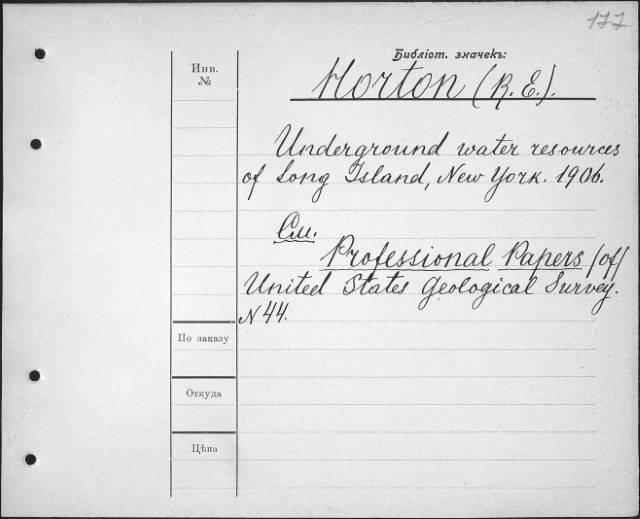 177
Библіот. значекъ:
Инв.
№
Horton (R. E.).
Underground water resources
of Long Island, New York. 1906.
См.
Professional Papers (of)
United States Geological Survey.
N 44.
По заказу
Откуда
Цѣна